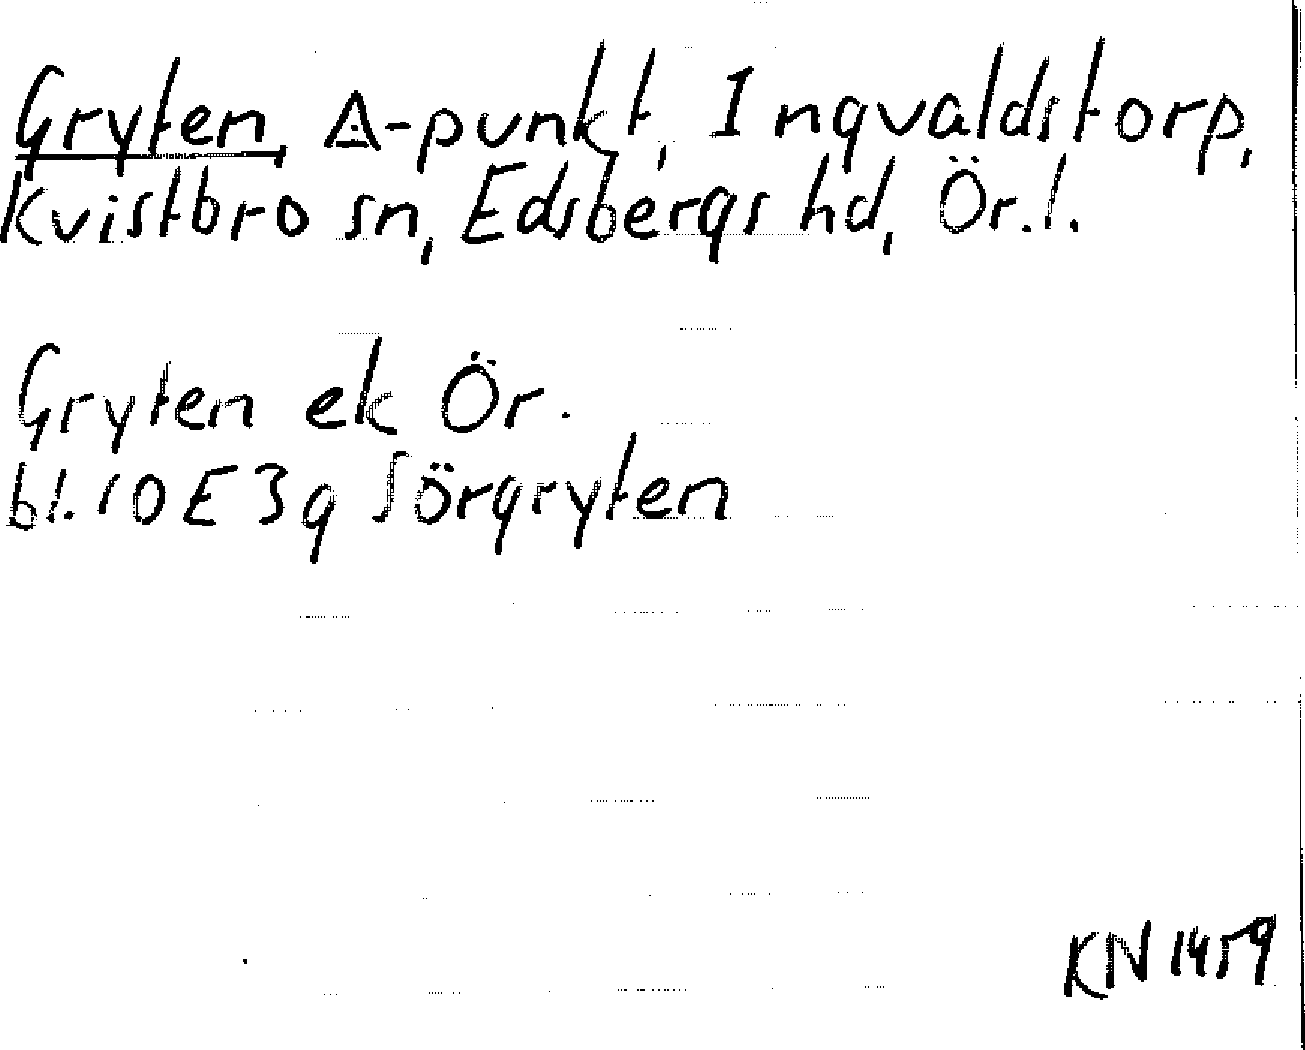 Gryten, Δ-punkt, Ingvaldstorp,
Kvistbro sn, Edsbergs hd, Ör.l.
Gryten ek Ör.
bl. 10E3g Sörgryten
KN1459